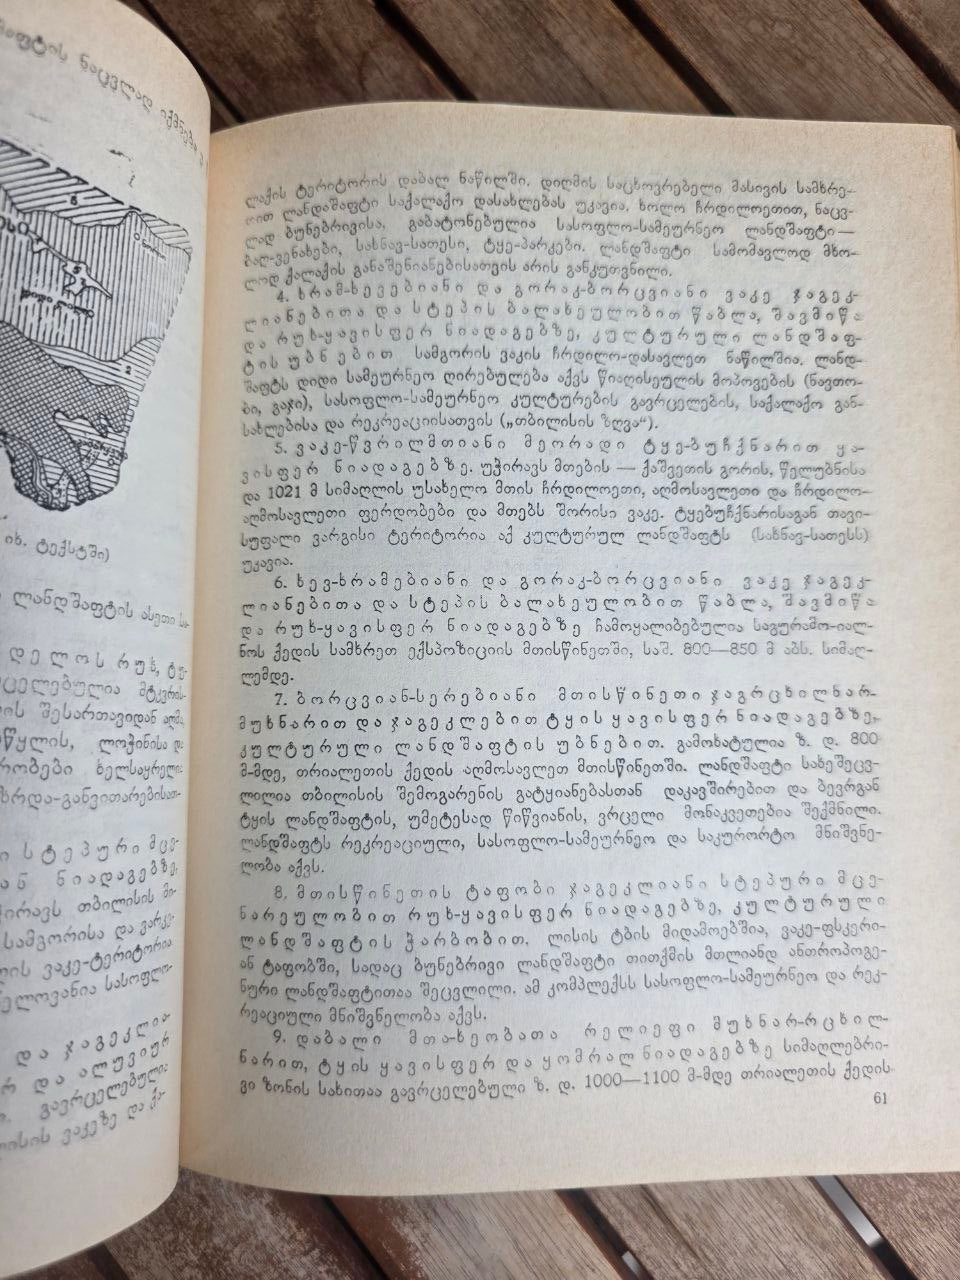 აფტის ნაცვლად იქმნება
1
6
5
2
იხ. ტექსტში)
ლანდშაფტის ასეთი სა-
დელოს რუხ, ტუ-
ცელებულია მტკვრის-
ის შესართავიდან აღმა
წყლის, ლოჭინისა და
რობები ხელსაყრელია
ზრდა-განვითარებისათ-
ი სტეპური მცე-
ან ნიადაგებზე,
ჭირავს თბილისის მი-
სამგორისა და ვარკე-
ის ვაკე-ტერიტორია
ელოვანია სასოფლო-
და ჯაგეკლია-
რ და ალუვიურ
გავრცელებულია
ისის ვაკეზე და ქა-
ლაქის ტერიტორიის დაბალ ნაწილში. დიღმის საცხოვრებელი მასივის სამხრე-
თით ლანდშაფტი საქალაქო დასახლებას უკავია, ხოლო ჩრდილოეთით, ნაცვ-
ლად ბუნებრივისა, გაბატონებულია სასოფლო-სამეურნეო ლანდშაფტი —
ბაღ-ვენახები, სახნავ-სათესი, ტყე-პარკები. ლანდშაფტი სამომავლოდ მხო-
ლოდ ქალაქის განაშენიანებისათვის არის განკუთვნილი.
4. ხრამ-ხევებიანი და გორაკ-ბორცვიანი ვაკე ჯაგეკ-
ლიანებითა და სტეპის ბალახეულობით წაბლა, შავმიწა
და რუხ-ყავისფერ ნიადაგებზე, კულტურული ლანდშაფ-
ტის უბნებით სამგორის ვაკის ჩრდილო-დასავლეთ ნაწილშია. ლანდ-
შაფტს დიდი სამეურნეო ღირებულება აქვს წიაღისეულის მოპოვების (ნავთო-
ბი, გაჯი), სასოფლო-სამეურნეო კულტურების გავრცელების, საქალაქო გან-
სახლებისა და რეკრეაციისათვის („თბილისის ზღვა“).
5. ვაკე-წვრილმთიანი მეორადი ტყე-ბუჩქნარით ყა-
ვისფერ ნიადაგებზე. უჭირავს მთების — ქაშვეთის გორის, წელუბნისა
და 1021 მ სიმაღლის უსახელო მთის ჩრდილოეთი, აღმოსავლეთი და ჩრდილო-
აღმოსავლეთი ფერდობები და მთებს შორისი ვაკე. ტყებუჩქნარისაგან თავი-
სუფალი ვარგისი ტერიტორია აქ კულტურულ ლანდშაფტს (სახნავ-სათესს)
უკავია.
6. ხევ-ხრამებიანი და გორაკ-ბორცვიანი ვაკე ჯაგეკ-
ლიანებითა და სტეპის ბალახეულობით წაბლა, შავმიწა
და რუხ-ყავისფერ ნიადაგებზე ჩამოყალიბებულია საგურამო-იალ-
ნოს ქედის სამხრეთ ექსპოზიციის მთისწინეთში, საშ. 800—850 მ აბს. სიმაღ-
ლემდე.
7. ბორცვიან-სერებიანი მთისწინეთი ჯაგრცხილნარ-
მუხნარით და ჯაგეკლებით ტყის ყავისფერ ნიადაგებზე,
კულტურული ლანდშაფტის უბნებით. გამოხატულია ზ. დ. 800
მ-მდე, თრიალეთის ქედის აღმოსავლეთ მთისწინეთში. ლანდშაფტი სახეშეცვ-
ლილია თბილისის შემოგარენის გატყიანებასთან დაკავშირებით და ბევრგან
ტყის ლანდშაფტის, უმეტესად წიწვიანის, ვრცელი მონაკვეთებია შექმნილი.
ლანდშაფტს რეკრეაციული, სასოფლო-სამეურნეო და საკურორტო მნიშვნე-
ლობა აქვს.
8. მთისწინეთის ტაფობი ჯაგეკლიანი სტეპური მცე-
ნარეულობით რუხ-ყავისფერ ნიადაგებზე, კულტურული
ლანდშაფტის ჭარბობით. ლისის ტბის მიდამოებშია, ვაკე-ფსკერი-
ან ტაფობში, სადაც ბუნებრივი ლანდშაფტი თითქმის მთლიანად ანთროპოგე-
ნური ლანდშაფტითაა შეცვლილი. ამ კომპლექსს სასოფლო-სამეურნეო და რეკ-
რეაციული მნიშვნელობა აქვს.
9. დაბალი მთა-ხეობათა რელიეფი მუხნარ-რცხილ-
ნარით, ტყის ყავისფერ და ყომრალ ნიადაგებზე სიმაღლებრი-
ვი ზონის სახითაა გავრცელებული ზ. დ. 1000—1100 მ-მდე თრიალეთის ქედის
61